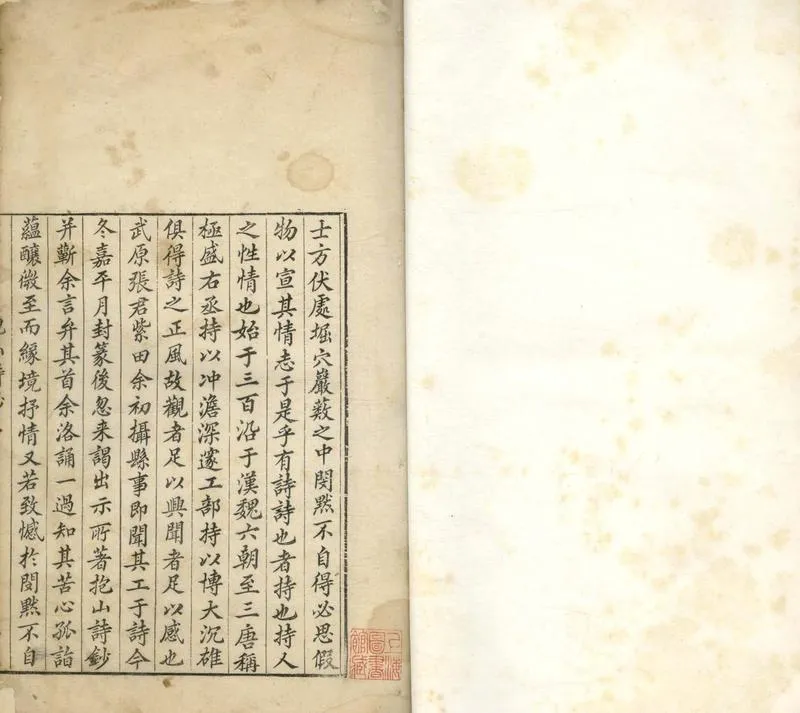 士方伏處堀穴巖薮之中閔默不自得必思假
物以宣其情志于是乎有詩詩也者持也持人
之性情也始于三百沿于漢魏六朝至三唐稱
極盛右丞持以冲澹深邃工部持以博大沉雄
俱得詩之正風故觀者足以興聞者足以感也
武原張君紫田余初攝縣事即聞其工于詩今
冬嘉平月封篆後忽來謁出示所著抱山詩鈔
并蘄余言弁其首余洛誦一過知其苦心孤詣
蘊釀微至而緣境抒情又若致憾於閔默不自
上海
圖書
館藏